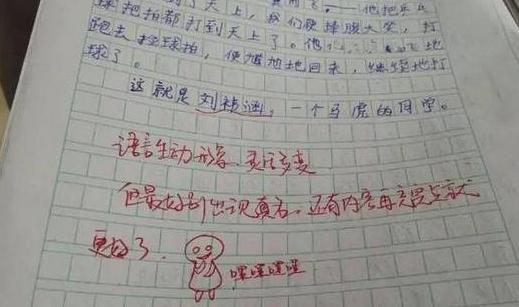 了天上,
他把乒乓
球把拍都打到天上了,我们便捧腹大笑,打
跑去捡球拍,便尴尬地回来,继续地打
球了。
这就是刘祯涵,一个马虎的同学。
语言生动形象、灵活多变
但最好别出现真名,还有内容再充实点就
更好了.
嘿嘿嘿嘿